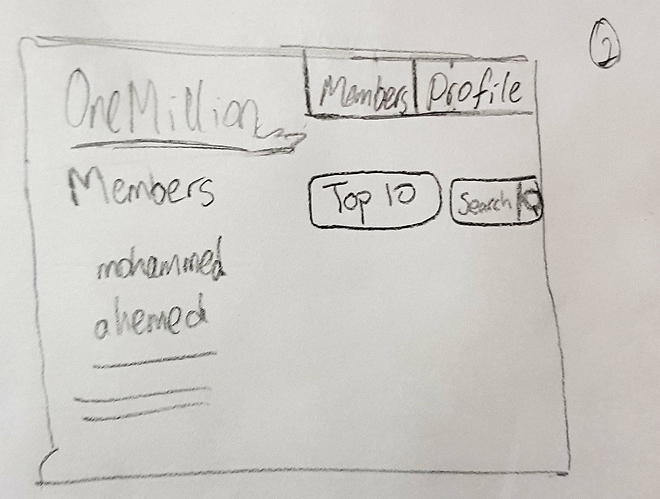 2
OneMillion
Members Profile
Members
Top 10
Search
mohammed
ahemed